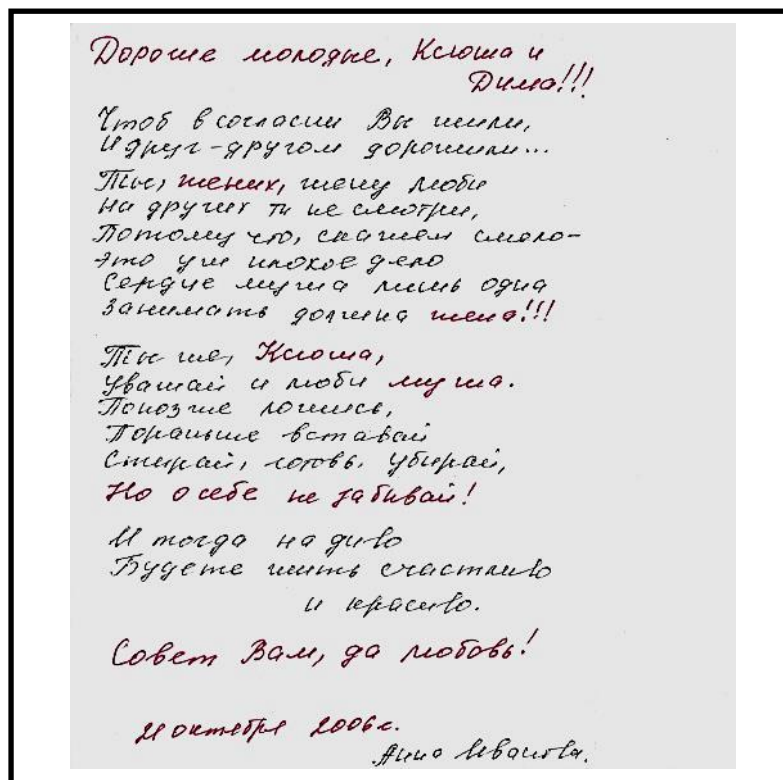 Дорогие молодые, Ксюша и
Дима!!!
Чтоб в согласии Вы жили,
И друг-другом дорожили...
Ты, жених, жену люби
На других ты не смотри,
Потому что, скажем смело-
Это уж плохое дело
Сердце мужа лишь одна
Занимать должна жена!!!
Ты же, Ксюша,
Уважай и люби мужа.
Попозже ложись,
Пораньше вставай
Стирай, готовь, убирай,
Но о себе не забывай!
И тогда на диво
Будете жить счастливо
и красиво.
Совет Вам, да любовь!
21 октября 2006 г.
Анна Иванова.